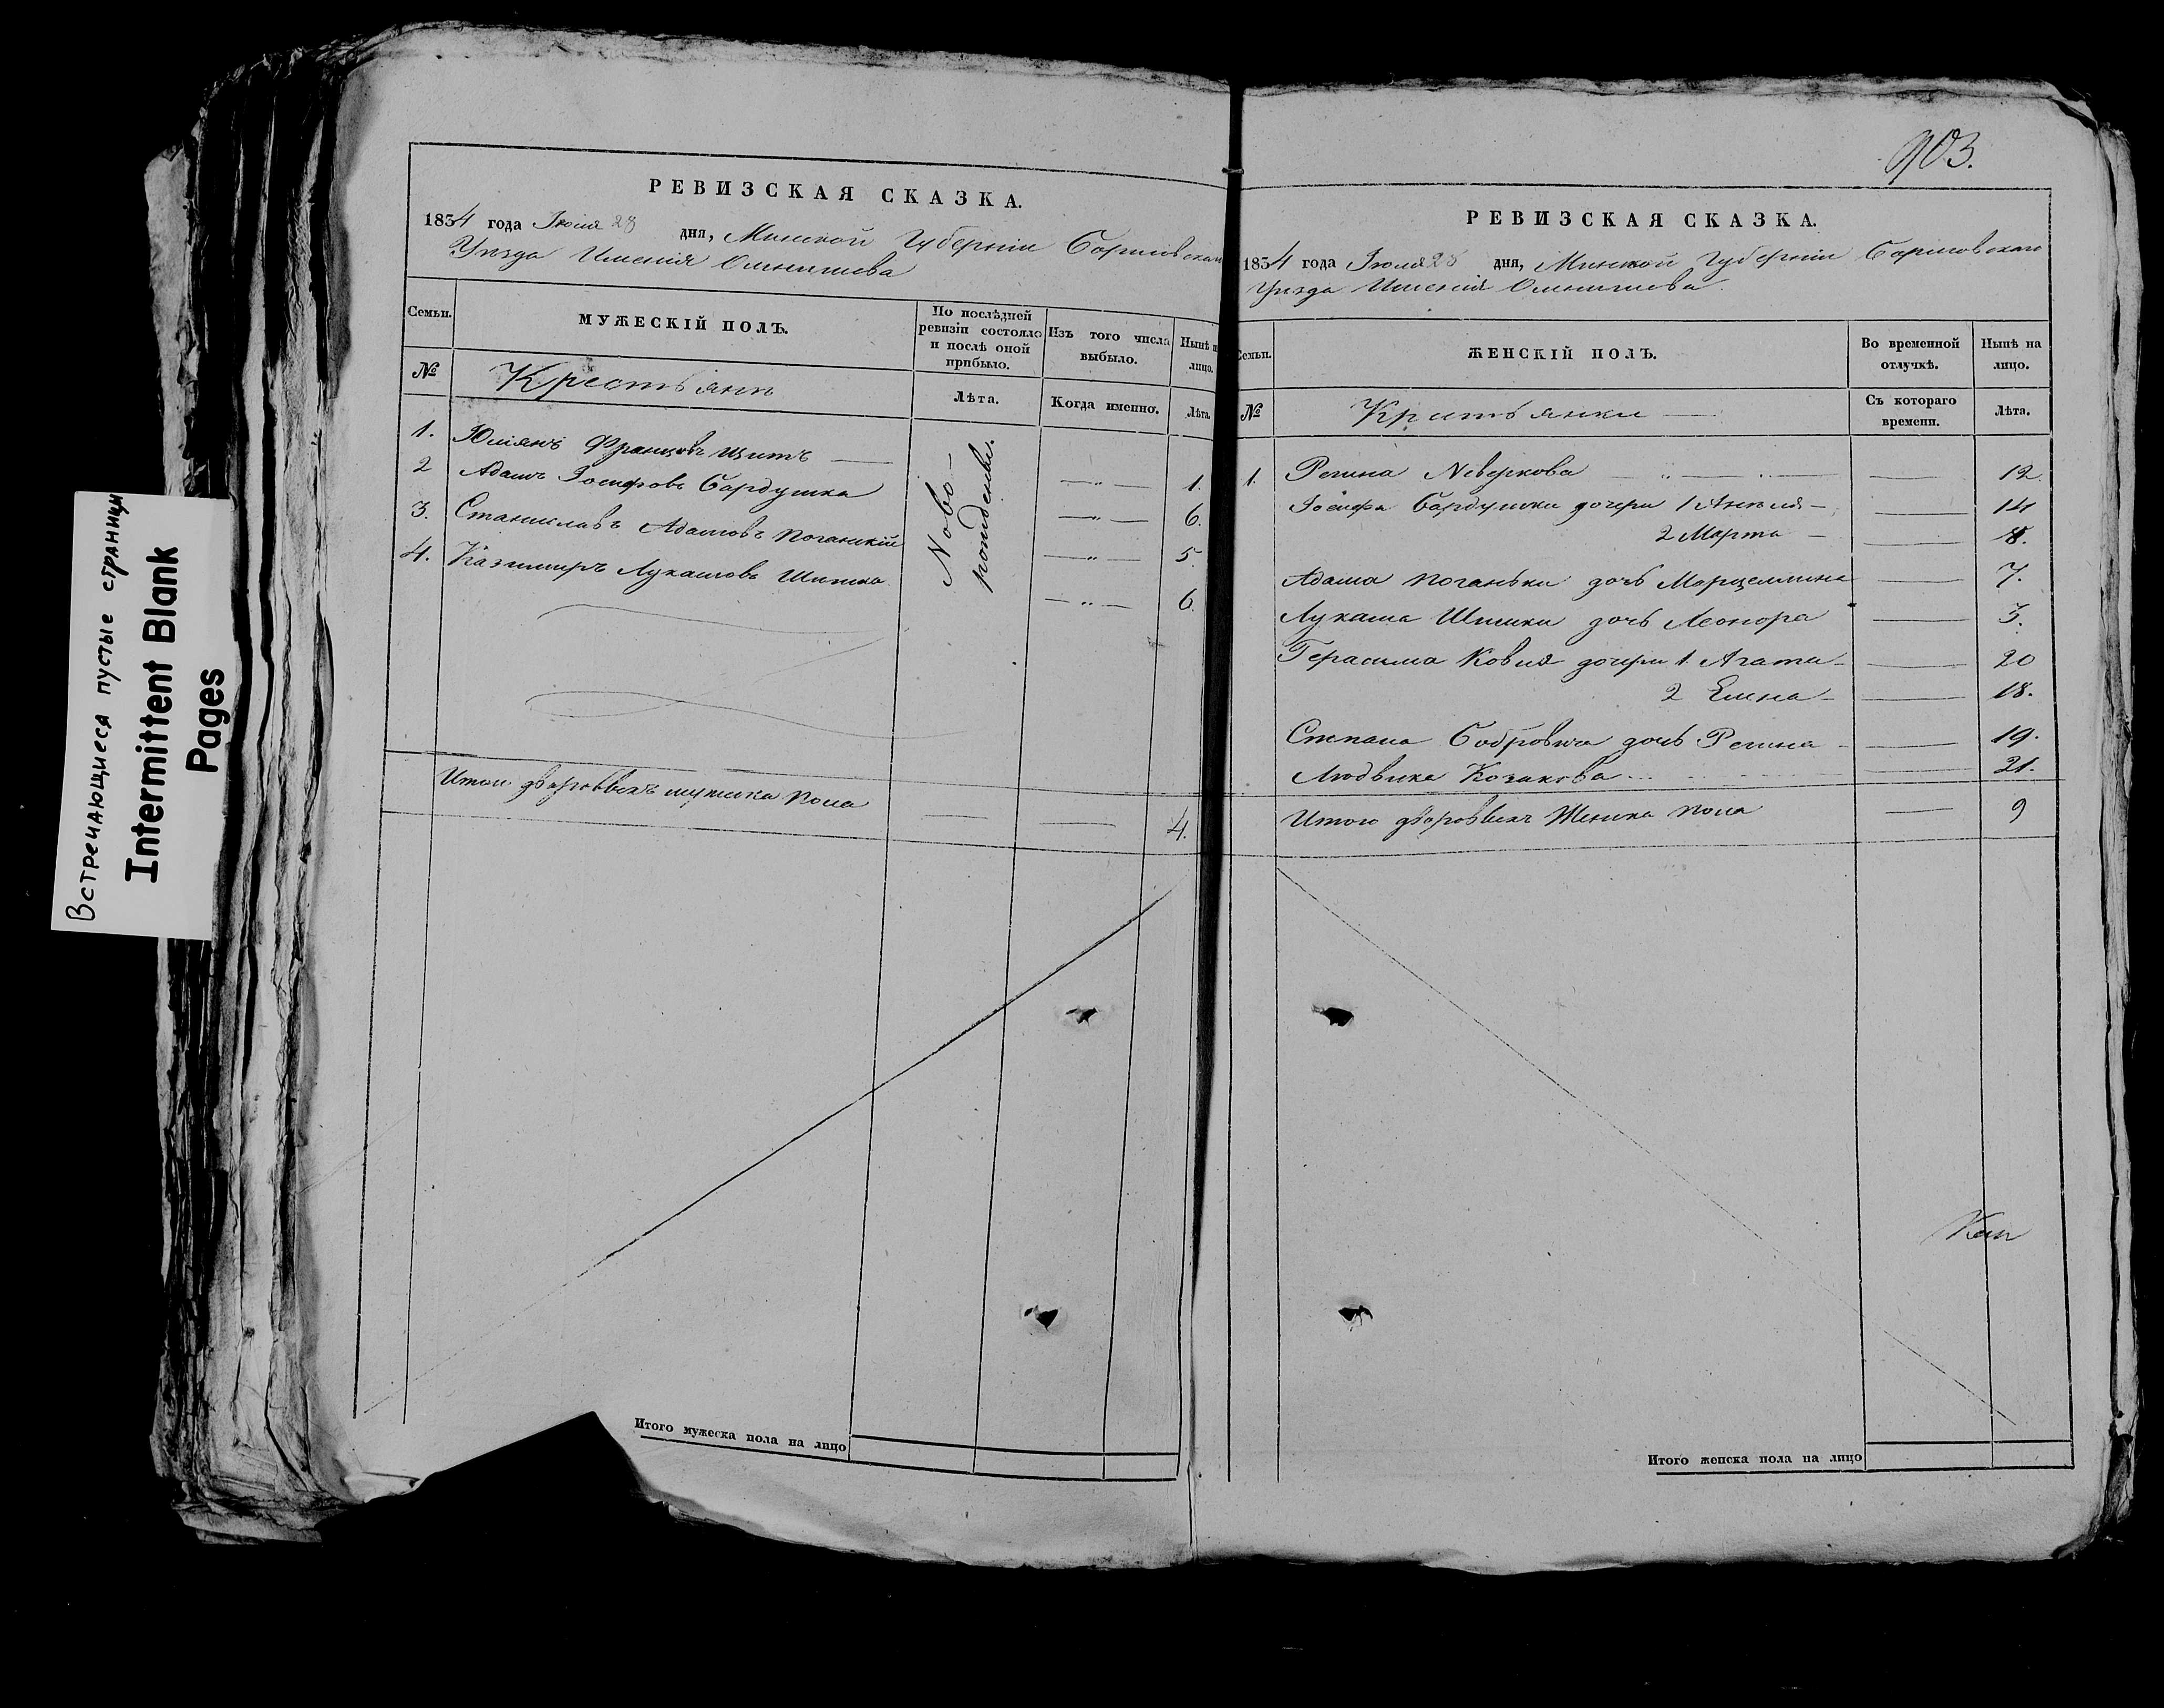 Встречающиеся пустые страницы
Intermittent Blank
Pages
РЕВИЗСКАЯ СКАЗКА.
1834 года Іюля 28 дня, Минской Губерніи Борисовскаго
Уезда Имения
Семьи.
МУЖЕСКІЙ ПОЛЪ.
По послѣдней ревизіи состояло и послѣ оной прибыло.
Изъ того числа выбыло.
Нынѣ на лицо.
№
Крестьянъ
Лѣта.
Когда именно.
Лѣта.
1. Юліянъ Францовъ Щитъ 1.
2 Адамъ Іосифовъ Бардушка 6.
3. Станиславъ Адамовъ 5.
4. Казимиръ Лукашовъ Шишка 6.
Ново-
рожденные.
Итого дворовыхъ мужеска пола 4.
Итого мужеска пола на лицо
903.
РЕВИЗСКАЯ СКАЗКА.
1834 года Іюля 28 дня, Минской Губерніи Борисовскаго
Уезда Имения
Семьи.
ЖЕНСКІЙ ПОЛЪ.
Во временной отлучкѣ.
Нынѣ на лицо.
№
Крестьянки
Съ котораго времени.
Лѣта.
1. Регина 12.
Іосифа Бардушки дочери 1 Анеля 14
2 Марта 8.
Адама дочь Марцеллина 7.
Лукаша Шишки дочь Леонора 3.
Герасима дочери 1. Агата 20
2 Елена 18.
Степана Бобровича дочь Регина 19.
Людвика Козакова 21.
Итого дворовыхъ Женска пола 9
Итого женска пола на лицо